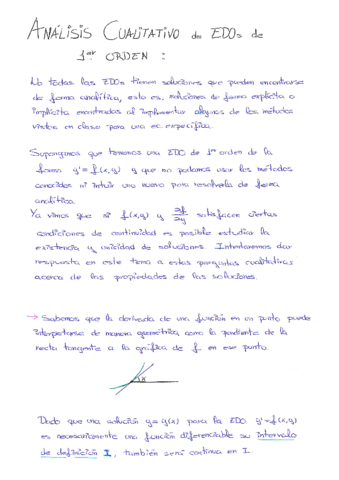 ANÁLISIS CUALITATIVO de EDOs de
1er ORDEN :
No todas las EDOs tienen soluciones que puedan encontrarse
de forma analítica, esto es, soluciones de forma explícita o
implícita encontradas al implementar algunos de los métodos
vistos en clase para una ec. específica.
Supongamos que tenemos una EDO de 1er orden de la
forma y' = f(x,y) y que no podamos usar los métodos
conocidos ni intuir uno nuevo para resolverla de forma
analítica.
Ya vimos que si f(x,y) y ∂f/∂y satisfacen ciertas
condiciones de continuidad es posible estudiar la
existencia y unicidad de soluciones. Intentaremos dar
respuesta en este tema a estas preguntas cualitativas
acerca de las propiedades de las soluciones.
→ Sabemos que la derivada de una función en un punto puede
interpretarse de manera geométrica, como la pendiente de la
recta tangente a la gráfica de f en ese punto.
Dado que una solución y = y(x) para la EDO y' = f(x,y)
es necesariamente una función diferenciable su intervalo
de definición I, también será continua en I.